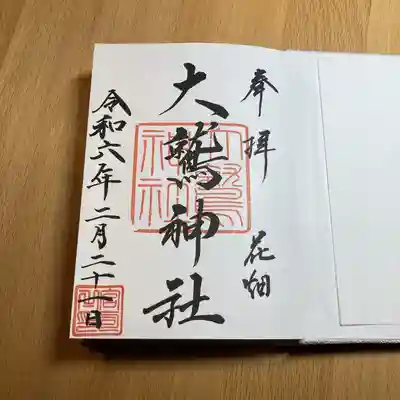 奉拝
花畑
大鷲神社
令和六年二月二十一日